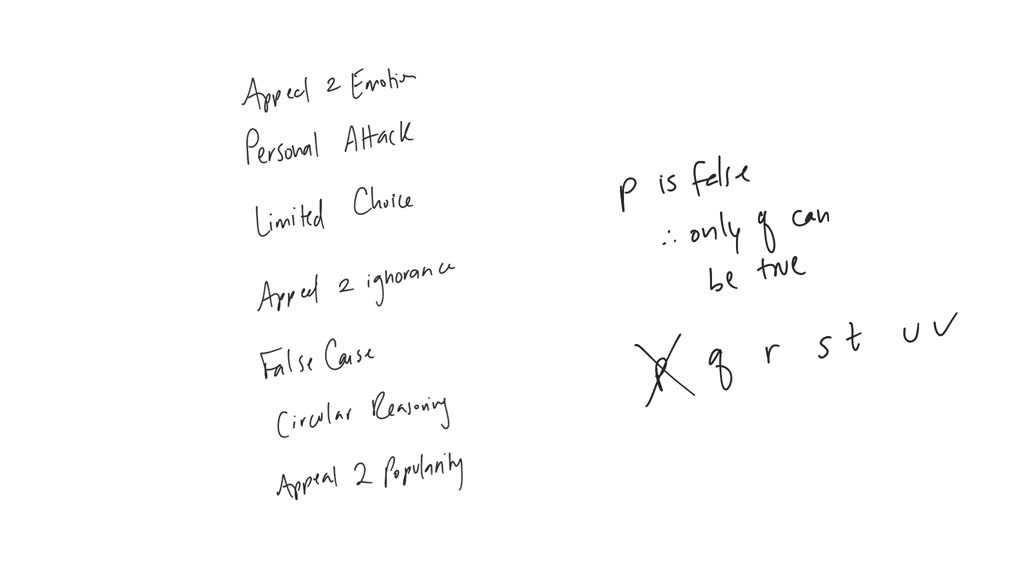 Appeal 2 Emotion
Personal Attack
Limited Choice
Appeal 2 ignorance
False Cause
Circular Reasoning
Appeal 2 Popularity
p is false
∴ only q can
be true
p q r s t u v